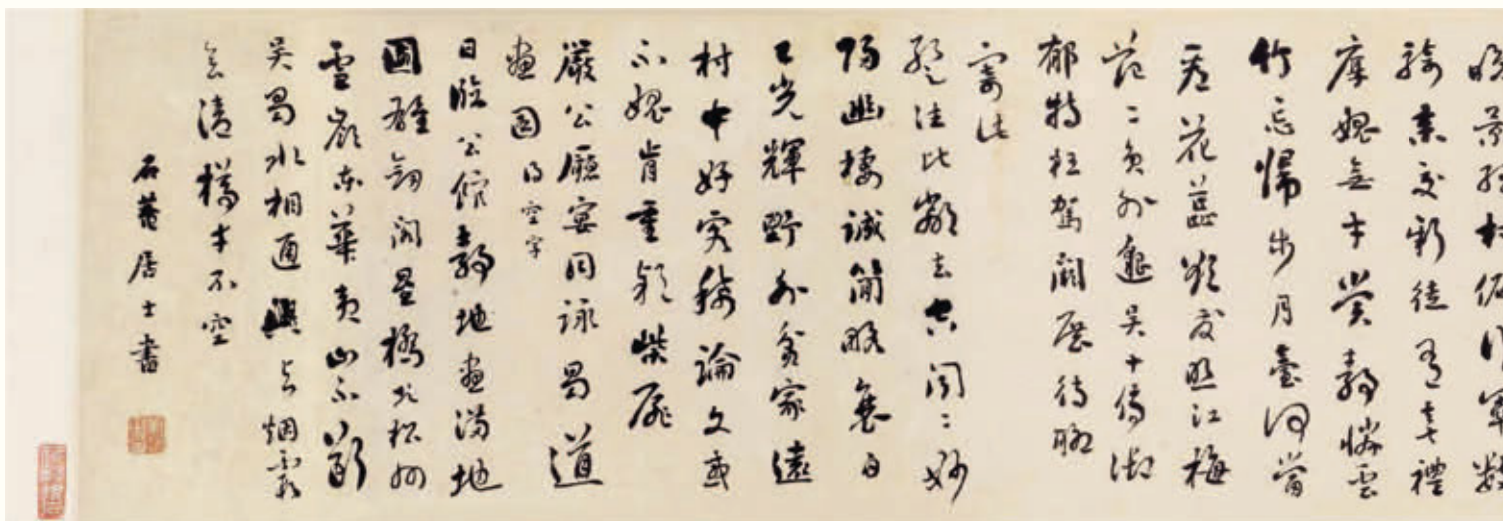 晚景孤村僻行軍數
騎來交新徒有喜禮
厚愧無才賞靜憐雲
竹忘歸步月臺何當
看花蕊欲發照江梅
范二員外邈吳十侍御
郁特枉駕闕展待聊
寄此
暫往比鄰去空聞二妙
歸幽棲誠簡略衰白
已光輝野外貧家遠
村中好客稀論文或
不愧肯重款柴扉
嚴公廳宴同詠蜀道
畫圖得空字
日臨公館靜地畫滿地
圖雄劍閣星橋北松州
雪嶺東華夷山不斷
吳蜀水相通興與烟霞
會清樽幸不空
石菴居士書